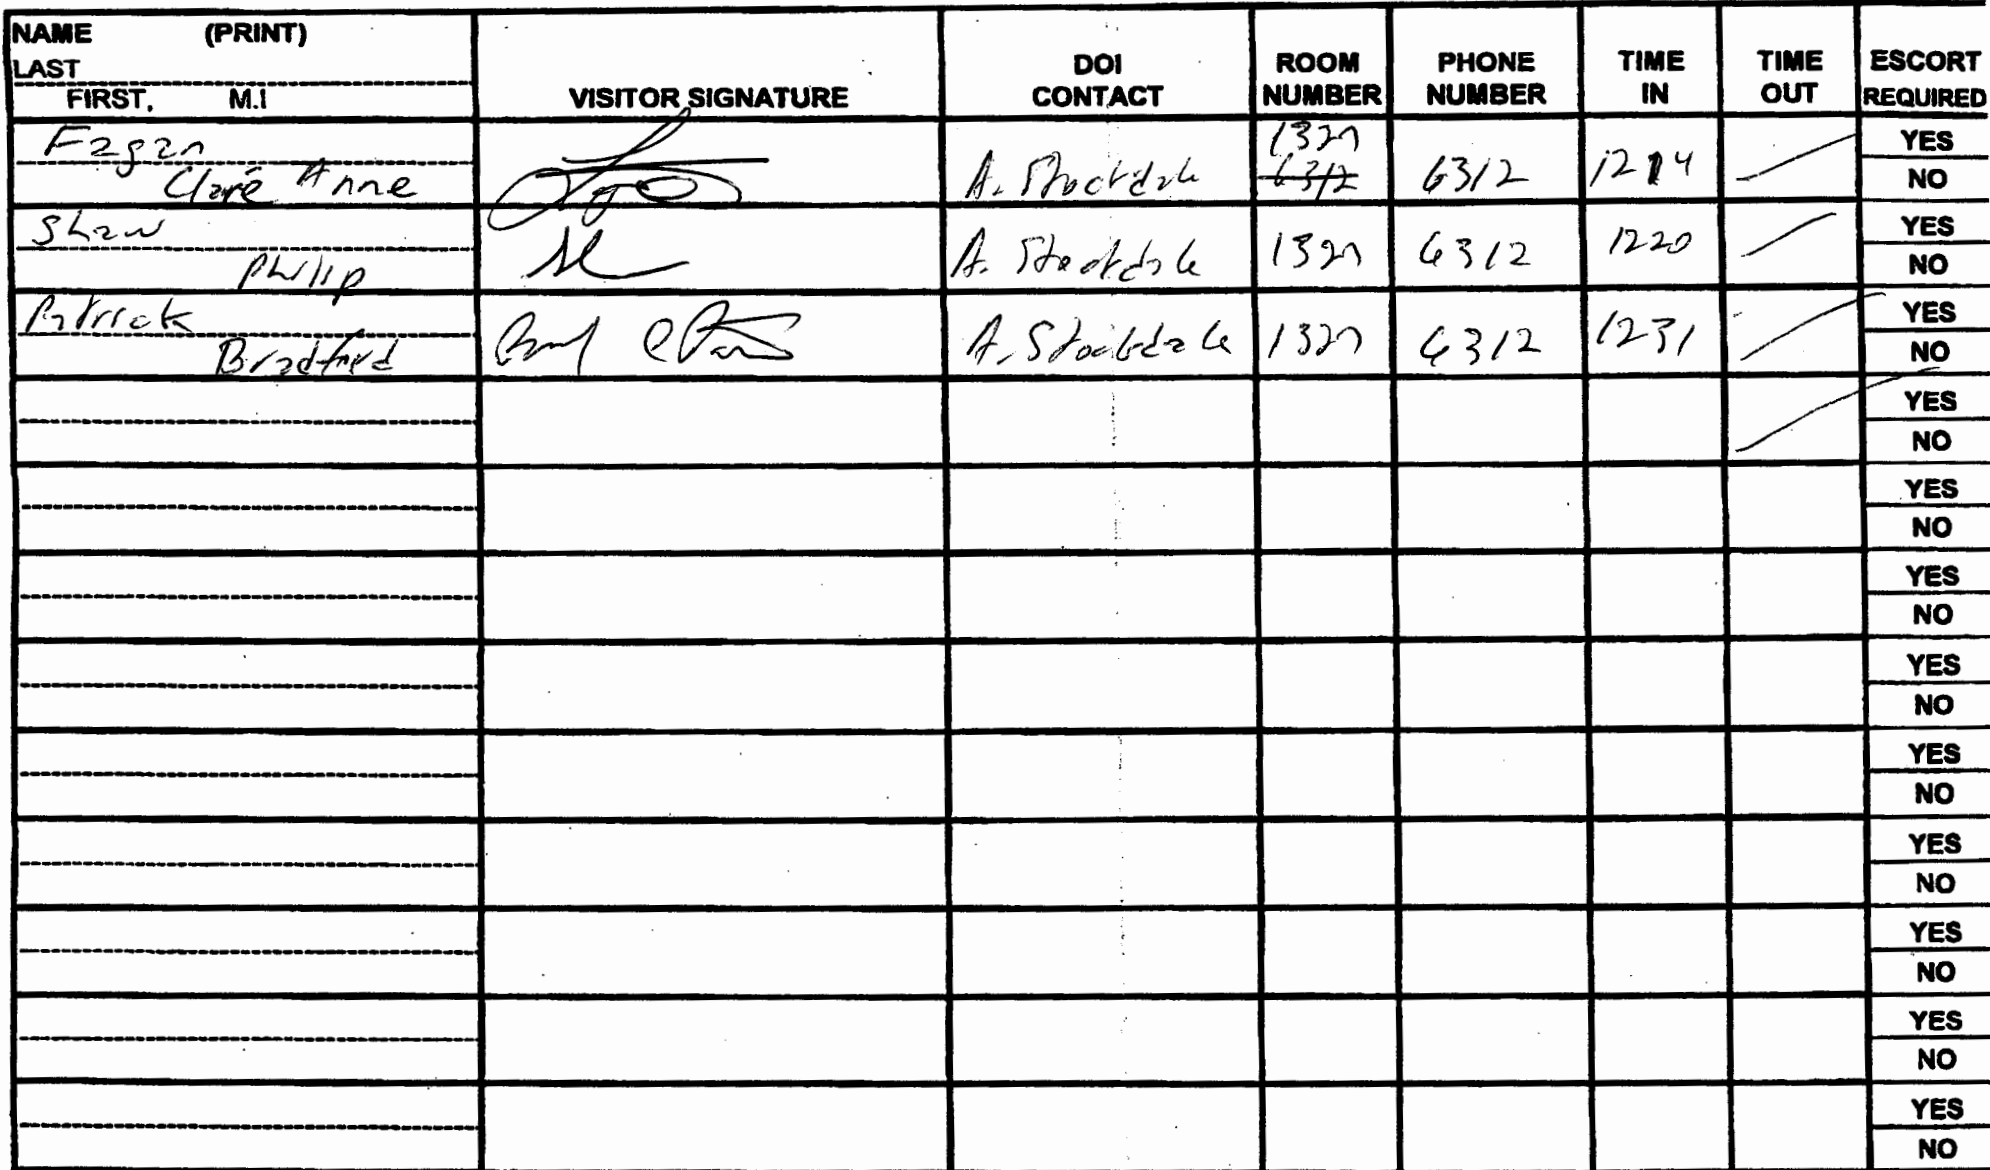 NAME (PRINT)
LAST
FIRST, M.I
VISITOR SIGNATURE
DOI CONTACT
ROOM NUMBER
PHONE NUMBER
TIME IN
TIME OUT
ESCORT REQUIRED
Fagan
Clare Anne
A. Stockdale
1327
6312
6312
1214
YES
NO
Shaw
Philip
A. Stockdale
1327
6312
1220
YES
NO
Patrick
Bradford
A. Stockdale
1327
6312
1231
YES
NO
YES
NO
YES
NO
YES
NO
YES
NO
YES
NO
YES
NO
YES
NO
YES
NO
YES
NO